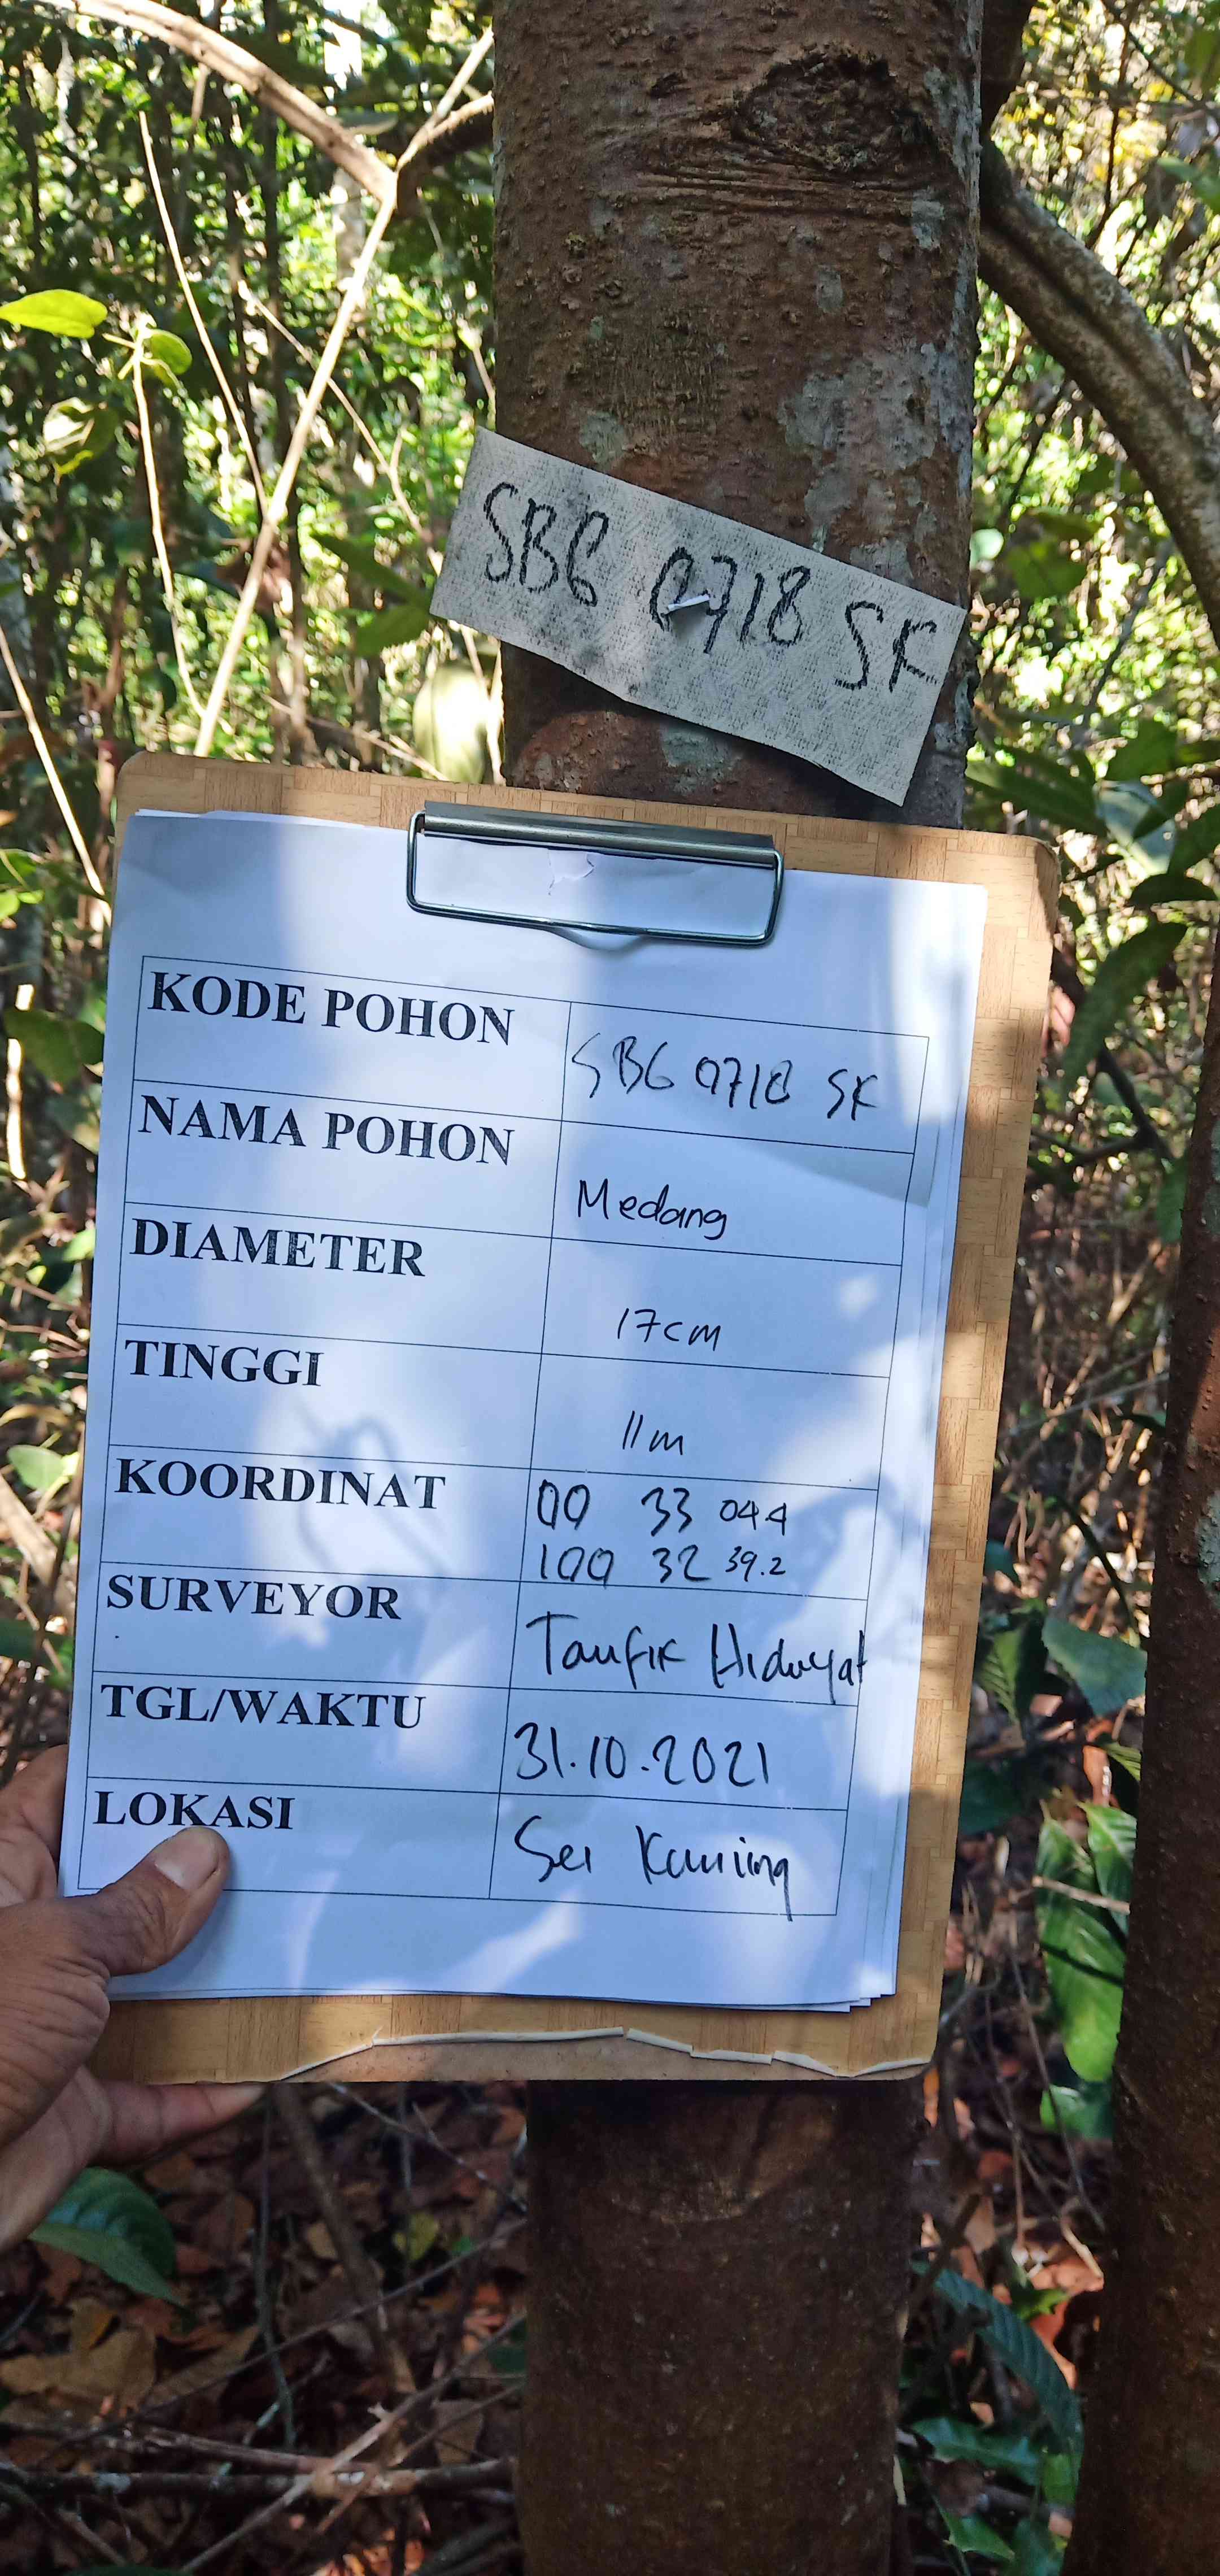 SBG 0718 SF
KODE POHON SBG 0718 SF
NAMA POHON Medang
DIAMETER 17cm
TINGGI 11m
KOORDINAT 00 33 04.4
100 32 39.2
SURVEYOR Taufik Hidayat
TGL/WAKTU 31.10.2021
LOKASI Sei Kuning